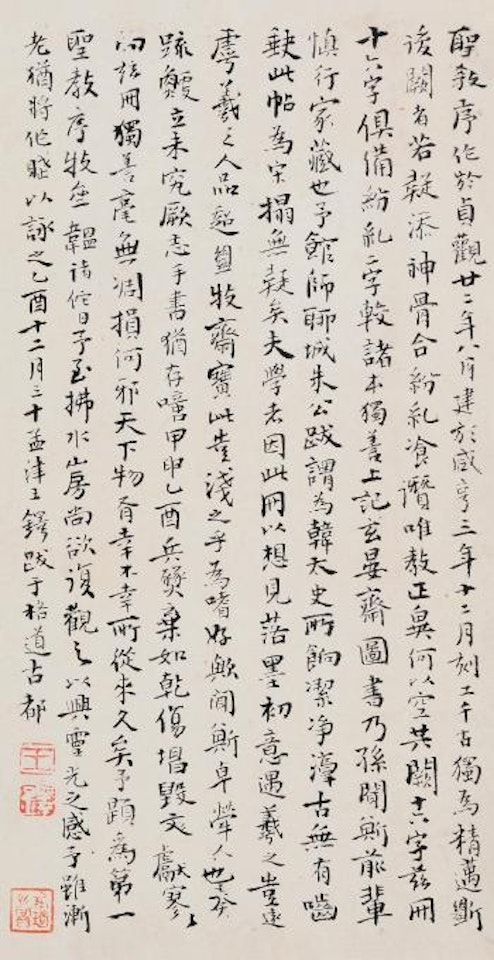 聖教序作於貞觀廿二年八月建於咸亨三年十二月刻工千古獨為精邁斷
後闕者若疑添神骨合紛糺飡潛唯教正異何以空其闕十六字茲冊
十六字俱備紛糺二字較諸本獨善上記玄晏齋圖書乃孫聞斯前輩
慎行家藏也予館師聊城朱公跋謂為韓太史所餉潔淨渟古無有嚙
缺此帖為宋搨無疑矣夫學者因此冊以想見落墨初意遇羲之豈遠
虖羲之人品超牧齋寶此豈淺之乎為嗜好歟聞斯卓犖人也癸
疏鯁立未究厥志手書猶存噫甲申乙酉兵燹棄如乾傷堋毀文獻寥寥
而茲冊獨善毫無凋損何邪天下物有幸不幸所從來久矣予題為第一
聖教序牧齋韞諸侘日予至拂水山房尚欲復觀之以興靈光之感予雖漸
老猶將作賦以詠之乙酉十二月三十孟津王鐸跋于格道古都
王鐸